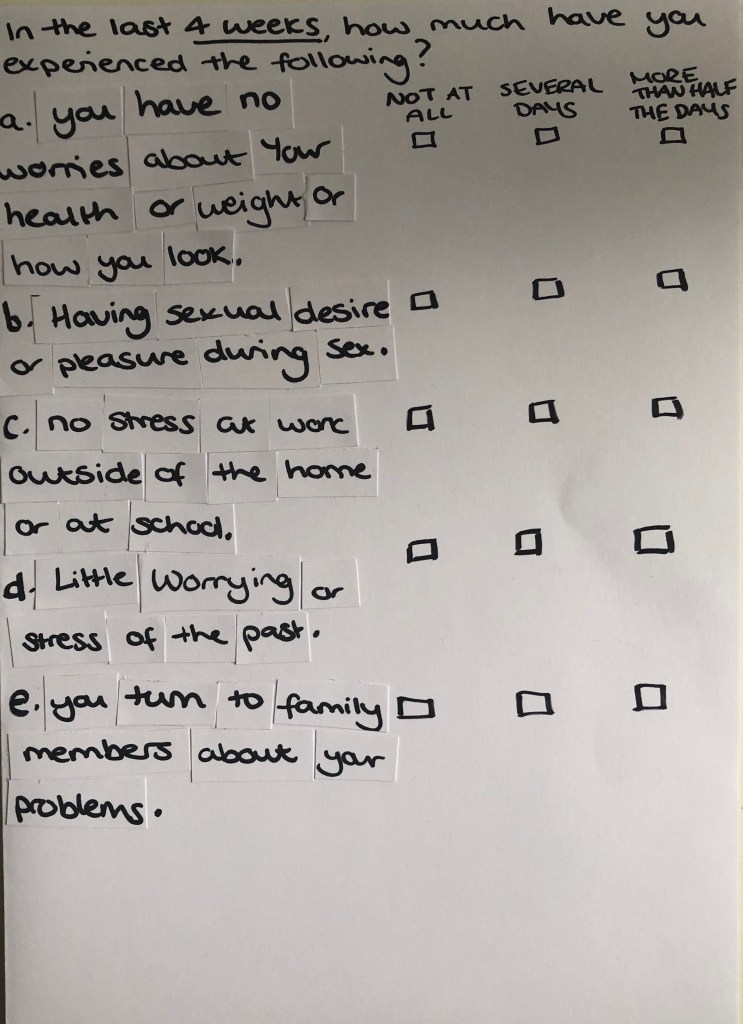 In the last 4 weeks, how much have you
experienced the following?
NOT AT ALL
SEVERAL DAYS
MORE THAN HALF THE DAYS
a. you have no
worries about your
health or weight or
how you look.
b. Having sexual desire
or pleasure during sex.
c. no stress at work
outside of the home
or at school.
d. Little Worrying or
stress of the past.
e. you turn to family
members about your
problems.